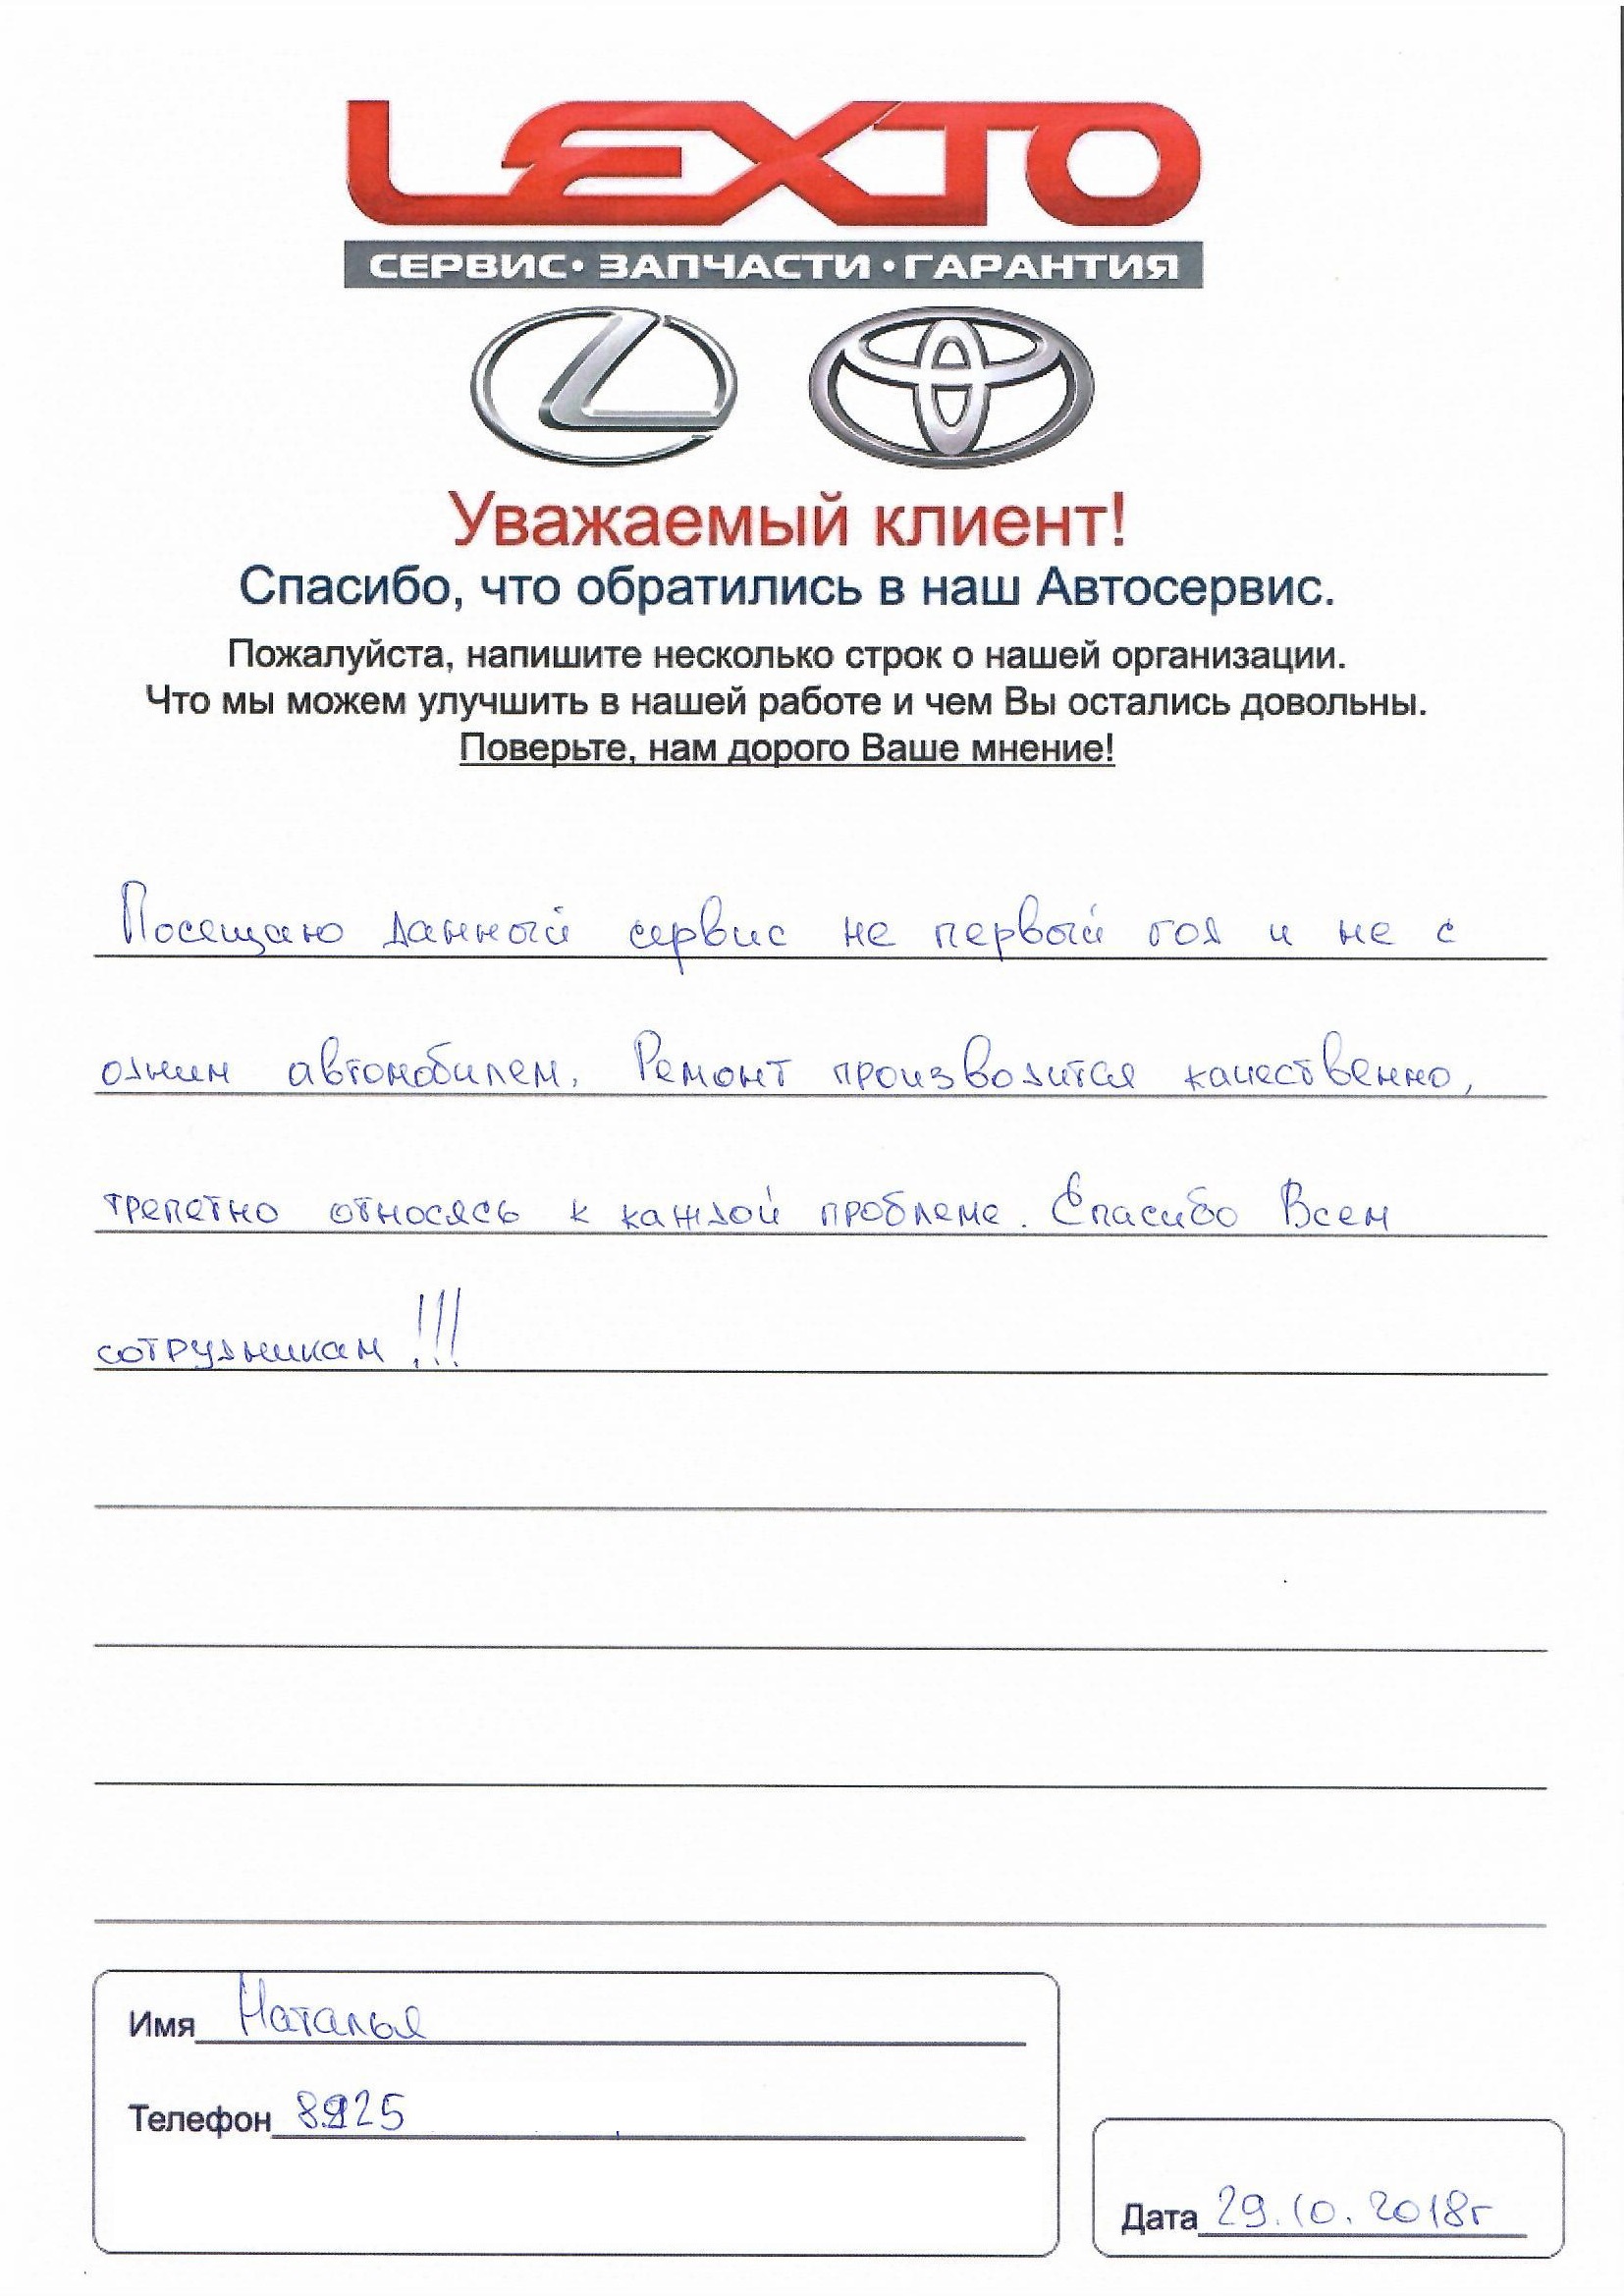 LEXTO
СЕРВИС • ЗАПЧАСТИ • ГАРАНТИЯ
Уважаемый клиент!
Спасибо, что обратились в наш Автосервис.
Пожалуйста, напишите несколько строк о нашей организации.
Что мы можем улучшить в нашей работе и чем Вы остались довольны.
Поверьте, нам дорого Ваше мнение!
Посещаю данный сервис не первый год и не с
одним автомобилем. Ремонт производится качественно,
трепетно относясь к каждой проблеме. Спасибо Всем
сотрудникам!!!
Имя Наталья
Телефон 8925
Дата 29.10.2018г